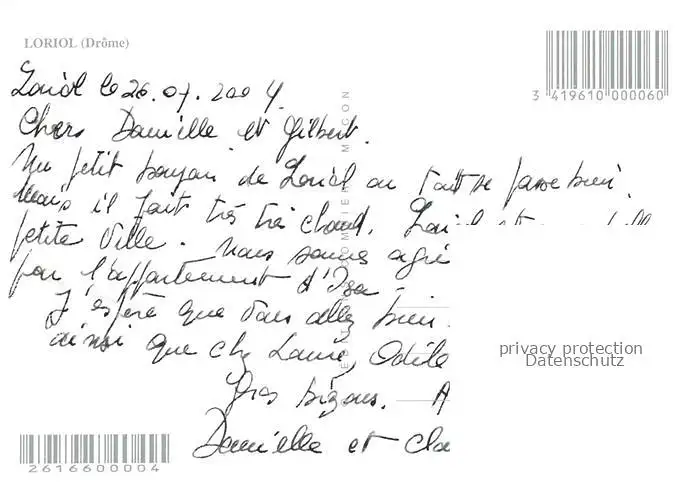 LORIOL (Drôme)
3 419610 000060
Loriol le 26.07.2004.
Chers Danielle et Gilbert.
Un petit bonjour de Loriol ou tout se passe bien.
Mais il fait très très chaud. Loriol est
petite ville. Nous sommes
par l'appartement d'Isa.
J'espère que vous allez bien.
ainsi que chez Laure, Odile
Gros bizous. A
Danielle et Cla
MACON
privacy protection
Datenschutz
2616600004